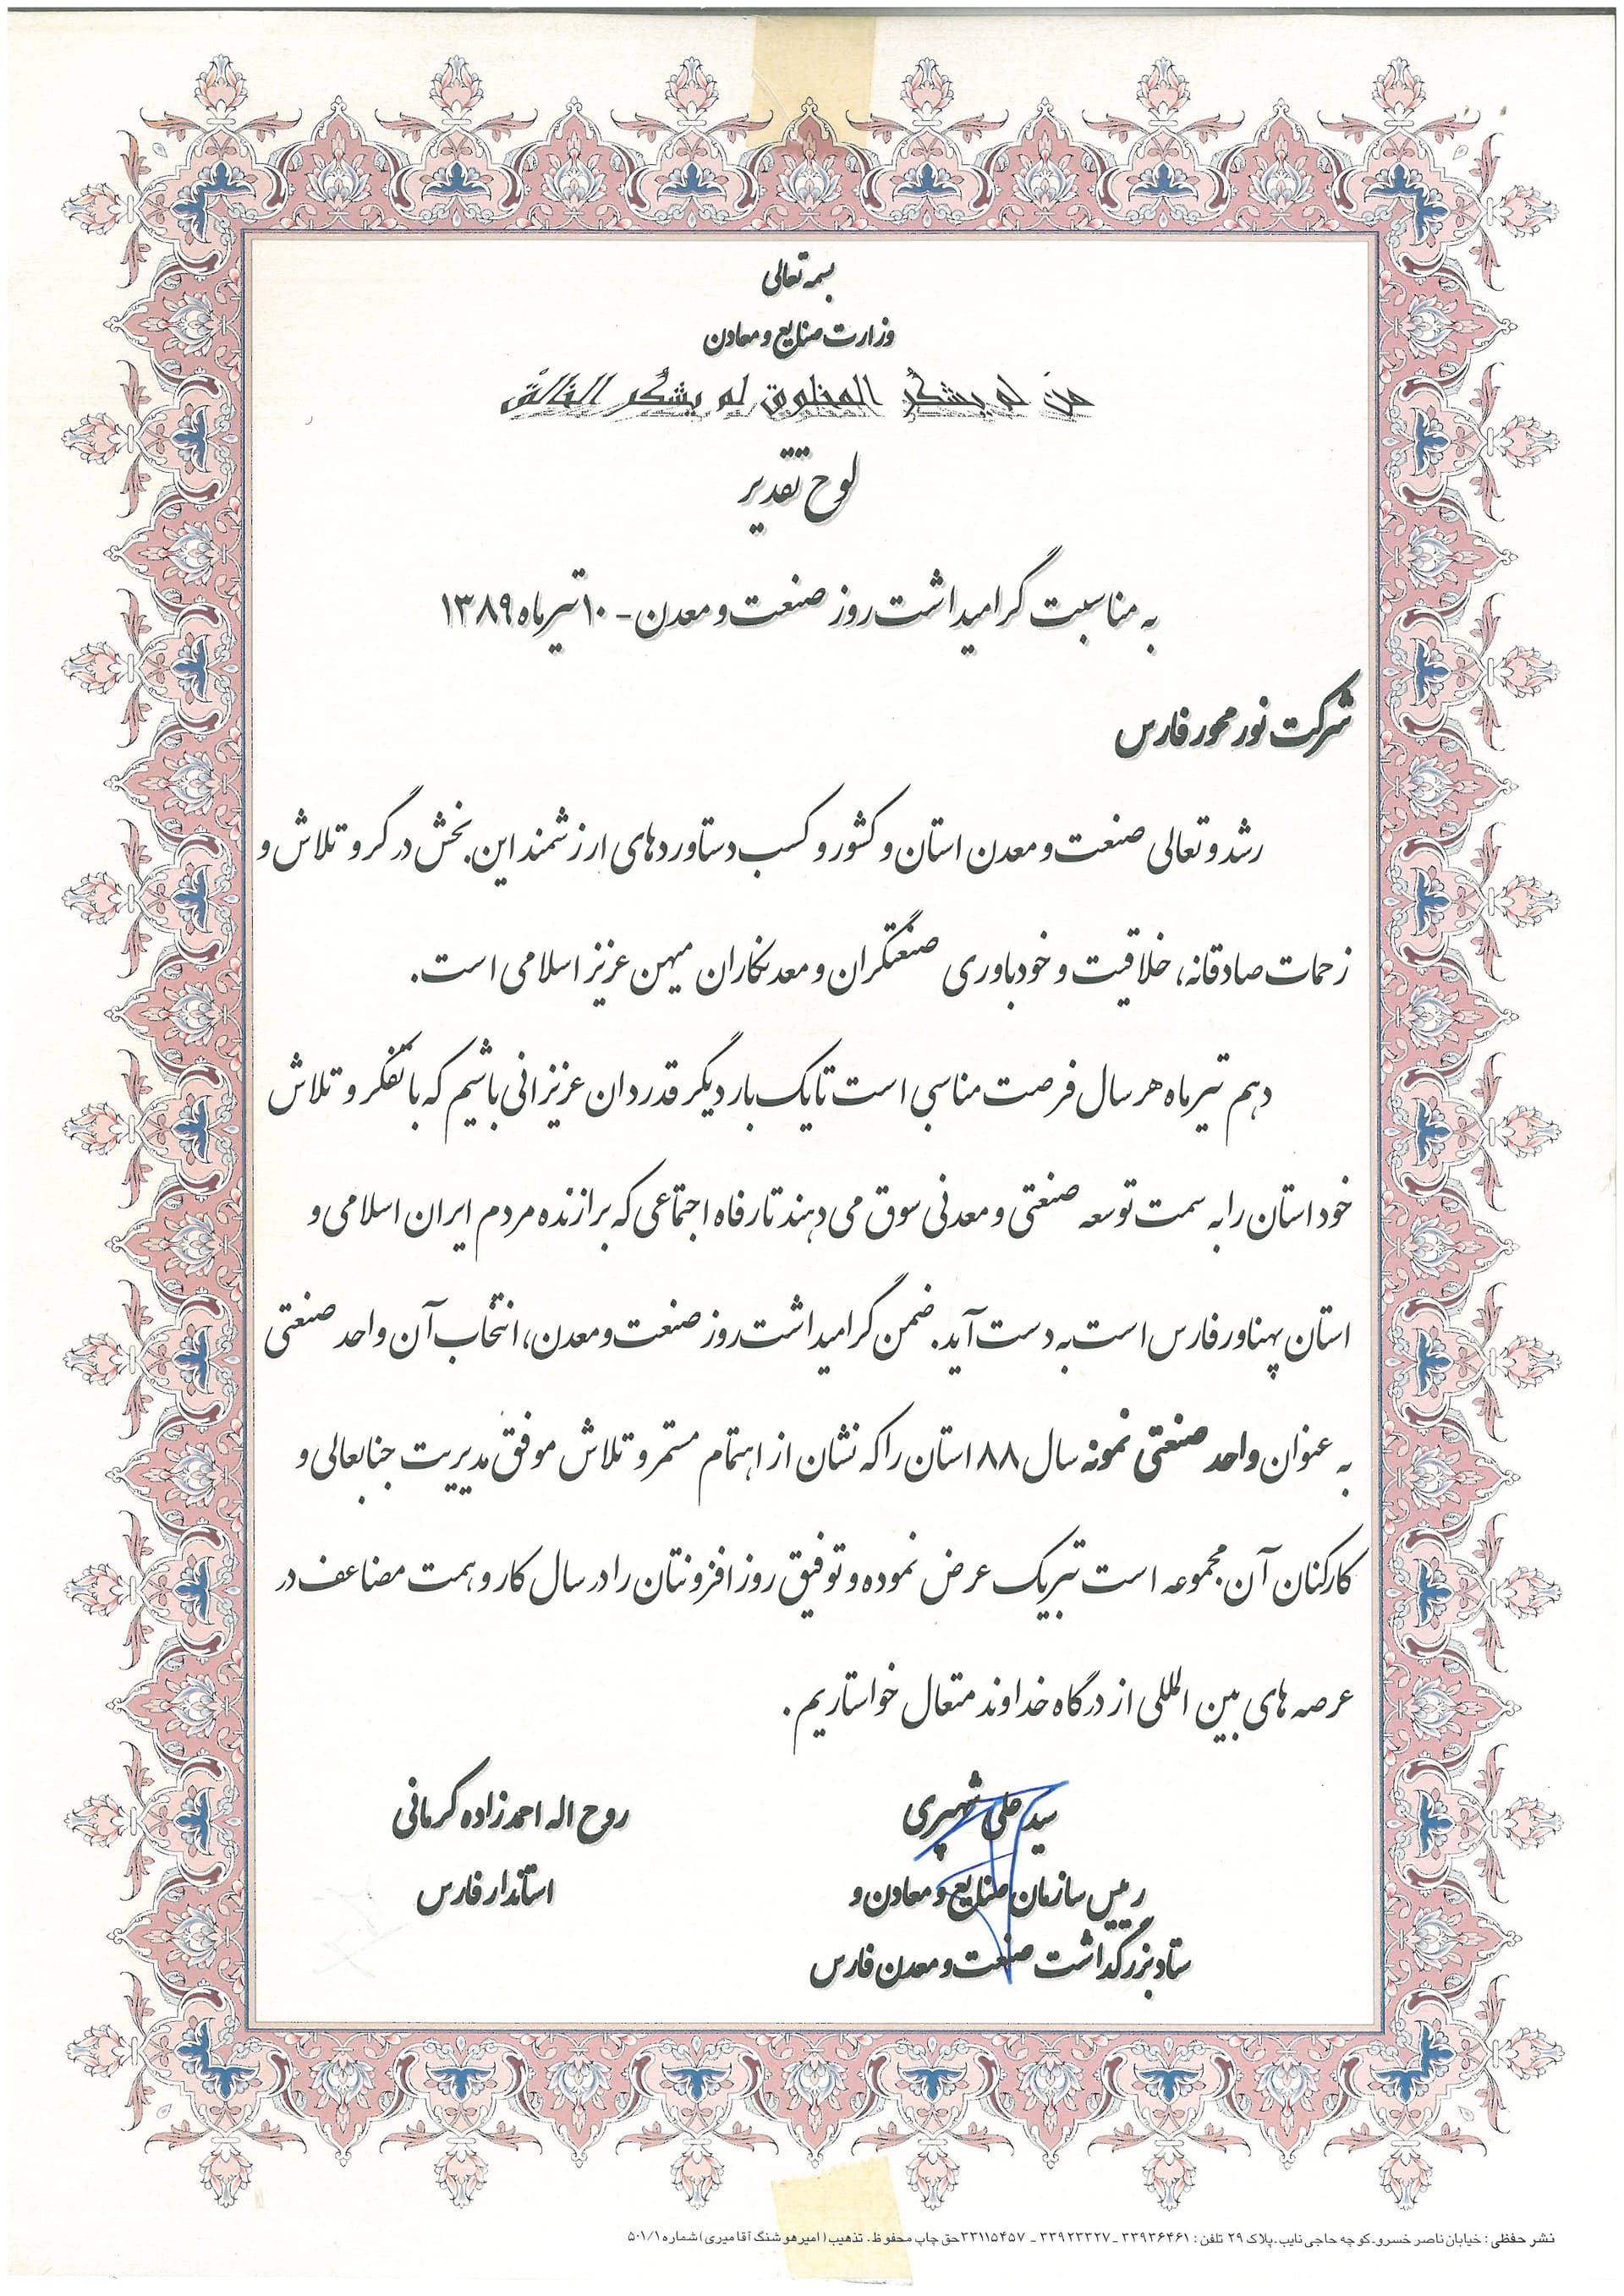 بسمه تعالی
وزارت صنایع و معادن
من لم یشکُر المخلوق لم یشکُر الخالق
لوح تقدیر
به مناسبت گرامیداشت روز صنعت و معدن - ۱۰ تیرماه ۱۳۸۹
شرکت نور محور فارس
رشد و تعالی صنعت و معدن استان و کشور و کسب دستاوردهای ارزشمند این بخش در گرو تلاش و
زحمات صادقانه، خلاقیت و خودباوری صنعتگران و معدنکاران میهن عزیز اسلامی است.
دهم تیرماه هر سال فرصت مناسبی است تا یک بار دیگر قدردان عزیزانی باشیم که با تفکر و تلاش
خود استان را به سمت توسعه صنعتی و معدنی سوق می دهند تا رفاه اجتماعی که برازنده مردم ایران اسلامی و
استان پهناور فارس است به دست آید. ضمن گرامیداشت روز صنعت و معدن، انتخاب آن واحد صنعتی
به عنوان واحد صنعتی نمونه سال ۸۸ استان را که نشان از اهتمام مستمر و تلاش موفق مدیریت جنابعالی و
کارکنان آن مجموعه است تبریک عرض نموده و توفیق روز افزونتان را در سال کار و همت مضاعف در
عرصه های بین المللی از درگاه خداوند متعال خواستاریم.
سید علی شهپری
رئیس سازمان صنایع و معادن و
ستاد بزرگداشت صنعت و معدن فارس
روح اله احمدزاده کرمانی
استاندار فارس
نشر حفظی : خیابان ناصر خسرو-کوچه حاجی نایب-پلاک ۲۹ تلفن : ۳۳۹۳۶۴۶۱ - ۳۳۹۲۳۳۲۷ - ۳۳۱۱۵۴۵۷ حق چاپ محفوظ. تذهیب (امیرهوشنگ آقامیری) شماره ۵۰۱/۱